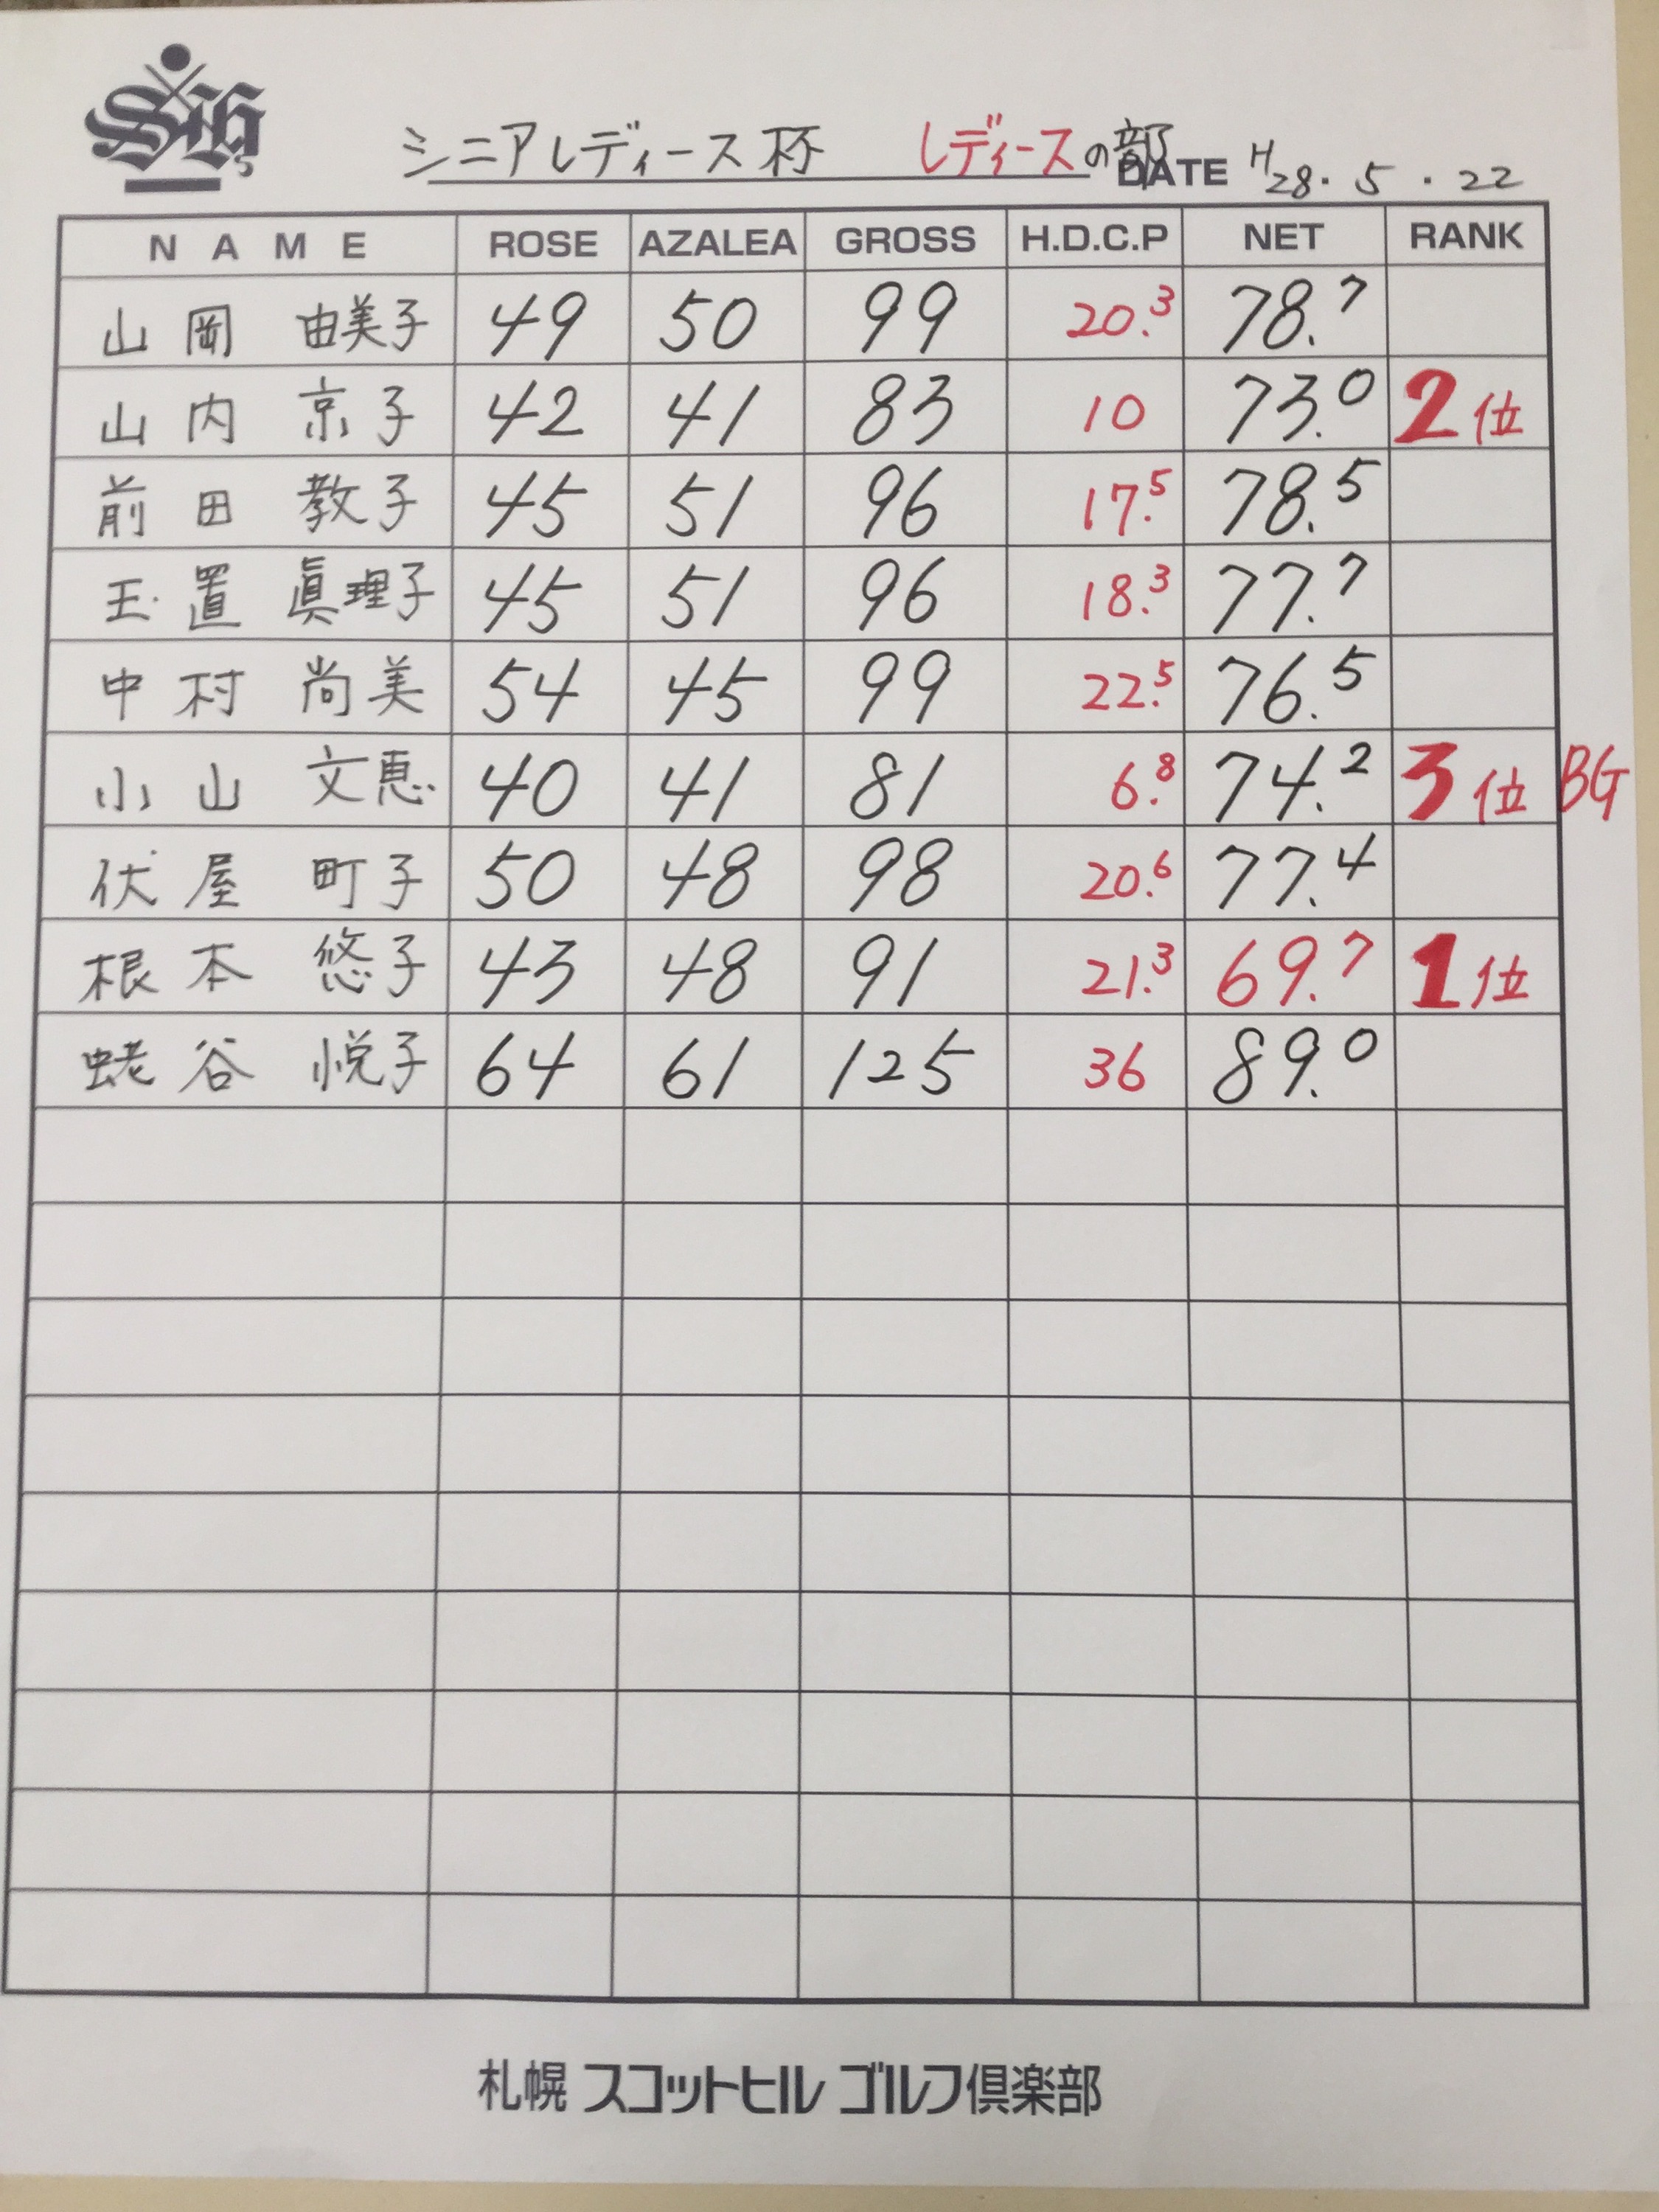 シニアレディース杯 レディースの部 DATE H28.5.22
NAME ROSE AZALEA GROSS H.D.C.P NET RANK
山岡 由美子 49 50 99 20.3 78.7
山内 京子 42 41 83 10 73.0 2位
前田 教子 45 51 96 17.5 78.5
玉置 眞理子 45 51 96 18.3 77.7
中村 尚美 54 45 99 22.5 76.5
小山 文恵 40 41 81 6.8 74.2 3位 BG
伏屋 町子 50 48 98 20.6 77.4
根本 悠子 43 48 91 21.3 69.7 1位
蛯谷 悦子 64 61 125 36 89.0
札幌 スコットヒル ゴルフ倶楽部